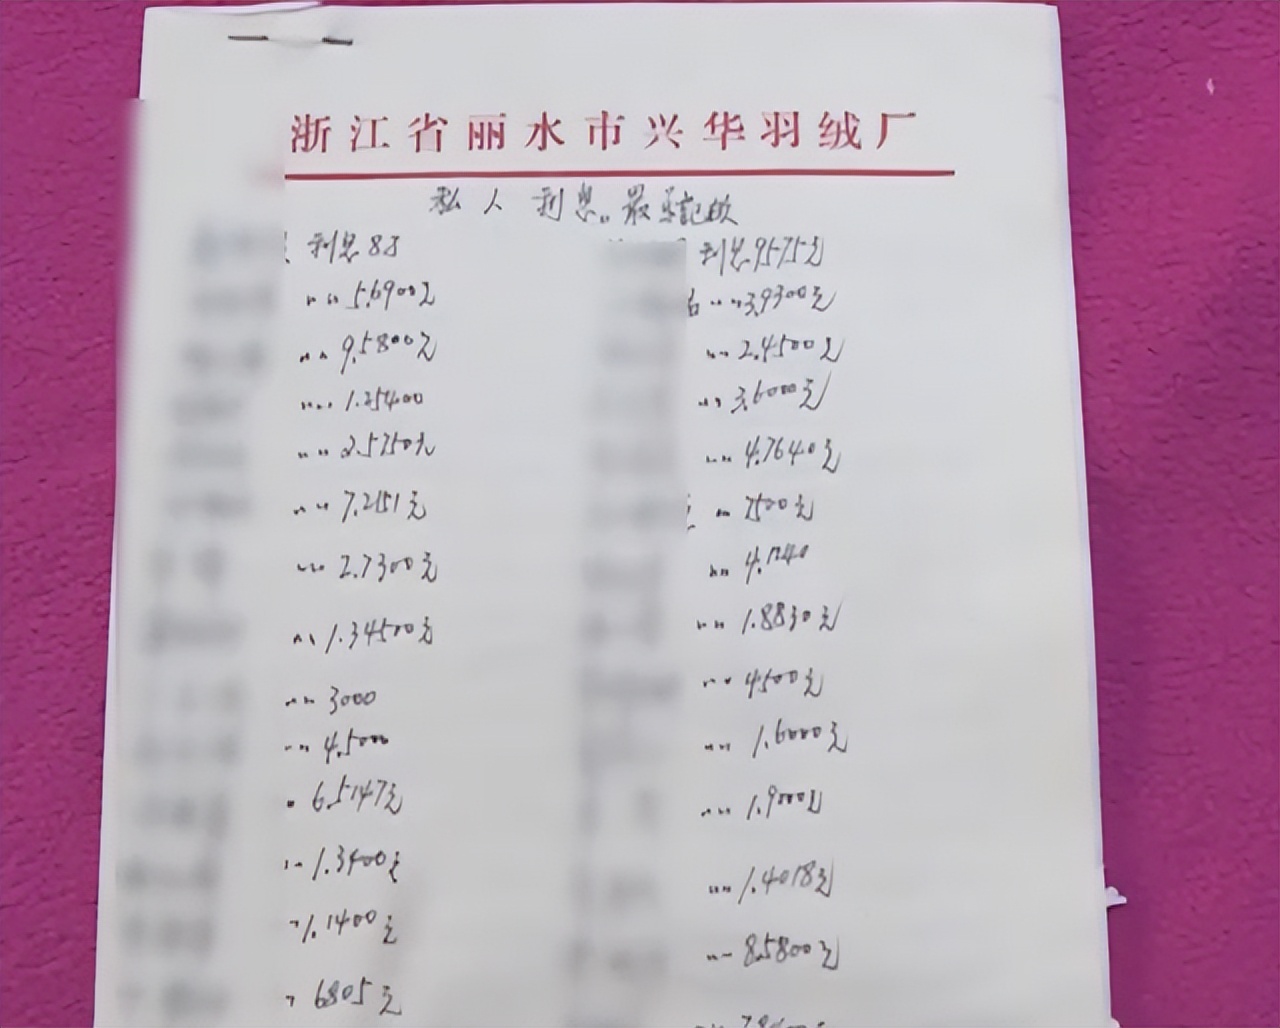 浙江省丽水市兴华羽绒厂
私人利息。最
利息8万
〃〃5.6900元
〃〃9.5800元
〃〃1.25400
〃〃2.5750元
〃〃7.2151元
〃〃2.7300元
〃〃1.34500元
〃〃3000
〃〃4.5000
〃6.5147元
〃1.3400元
〃1.1400元
〃6805元
利息9575元
〃〃3.9300元
〃〃2.4500元
〃〃3.6000元
〃〃4.7640元
〃7500元
〃〃4.
〃〃1.8830元
〃〃4500元
〃〃1.6000元
〃〃1.9000元
〃〃1.4018元
〃〃8.5800元